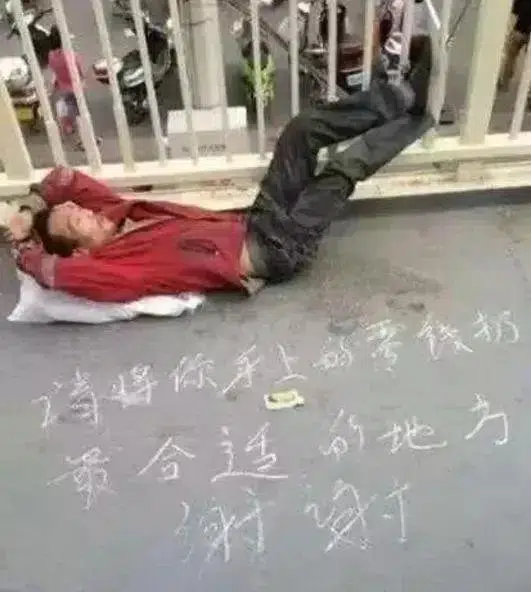 请将你手上的零钱扔
最合适的地方
谢谢